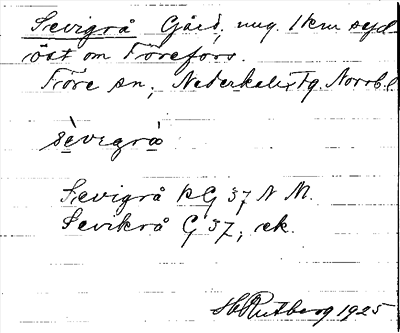 Sevigrå Gård, ung. 1 km syd
öst om Törefors.
Töre sn, Nederkalix Tg. Norrb. l.
sèvigrå
Sevigrå KG 37 N M.
Sevikrå G 37, ek.
H Rutberg 1925